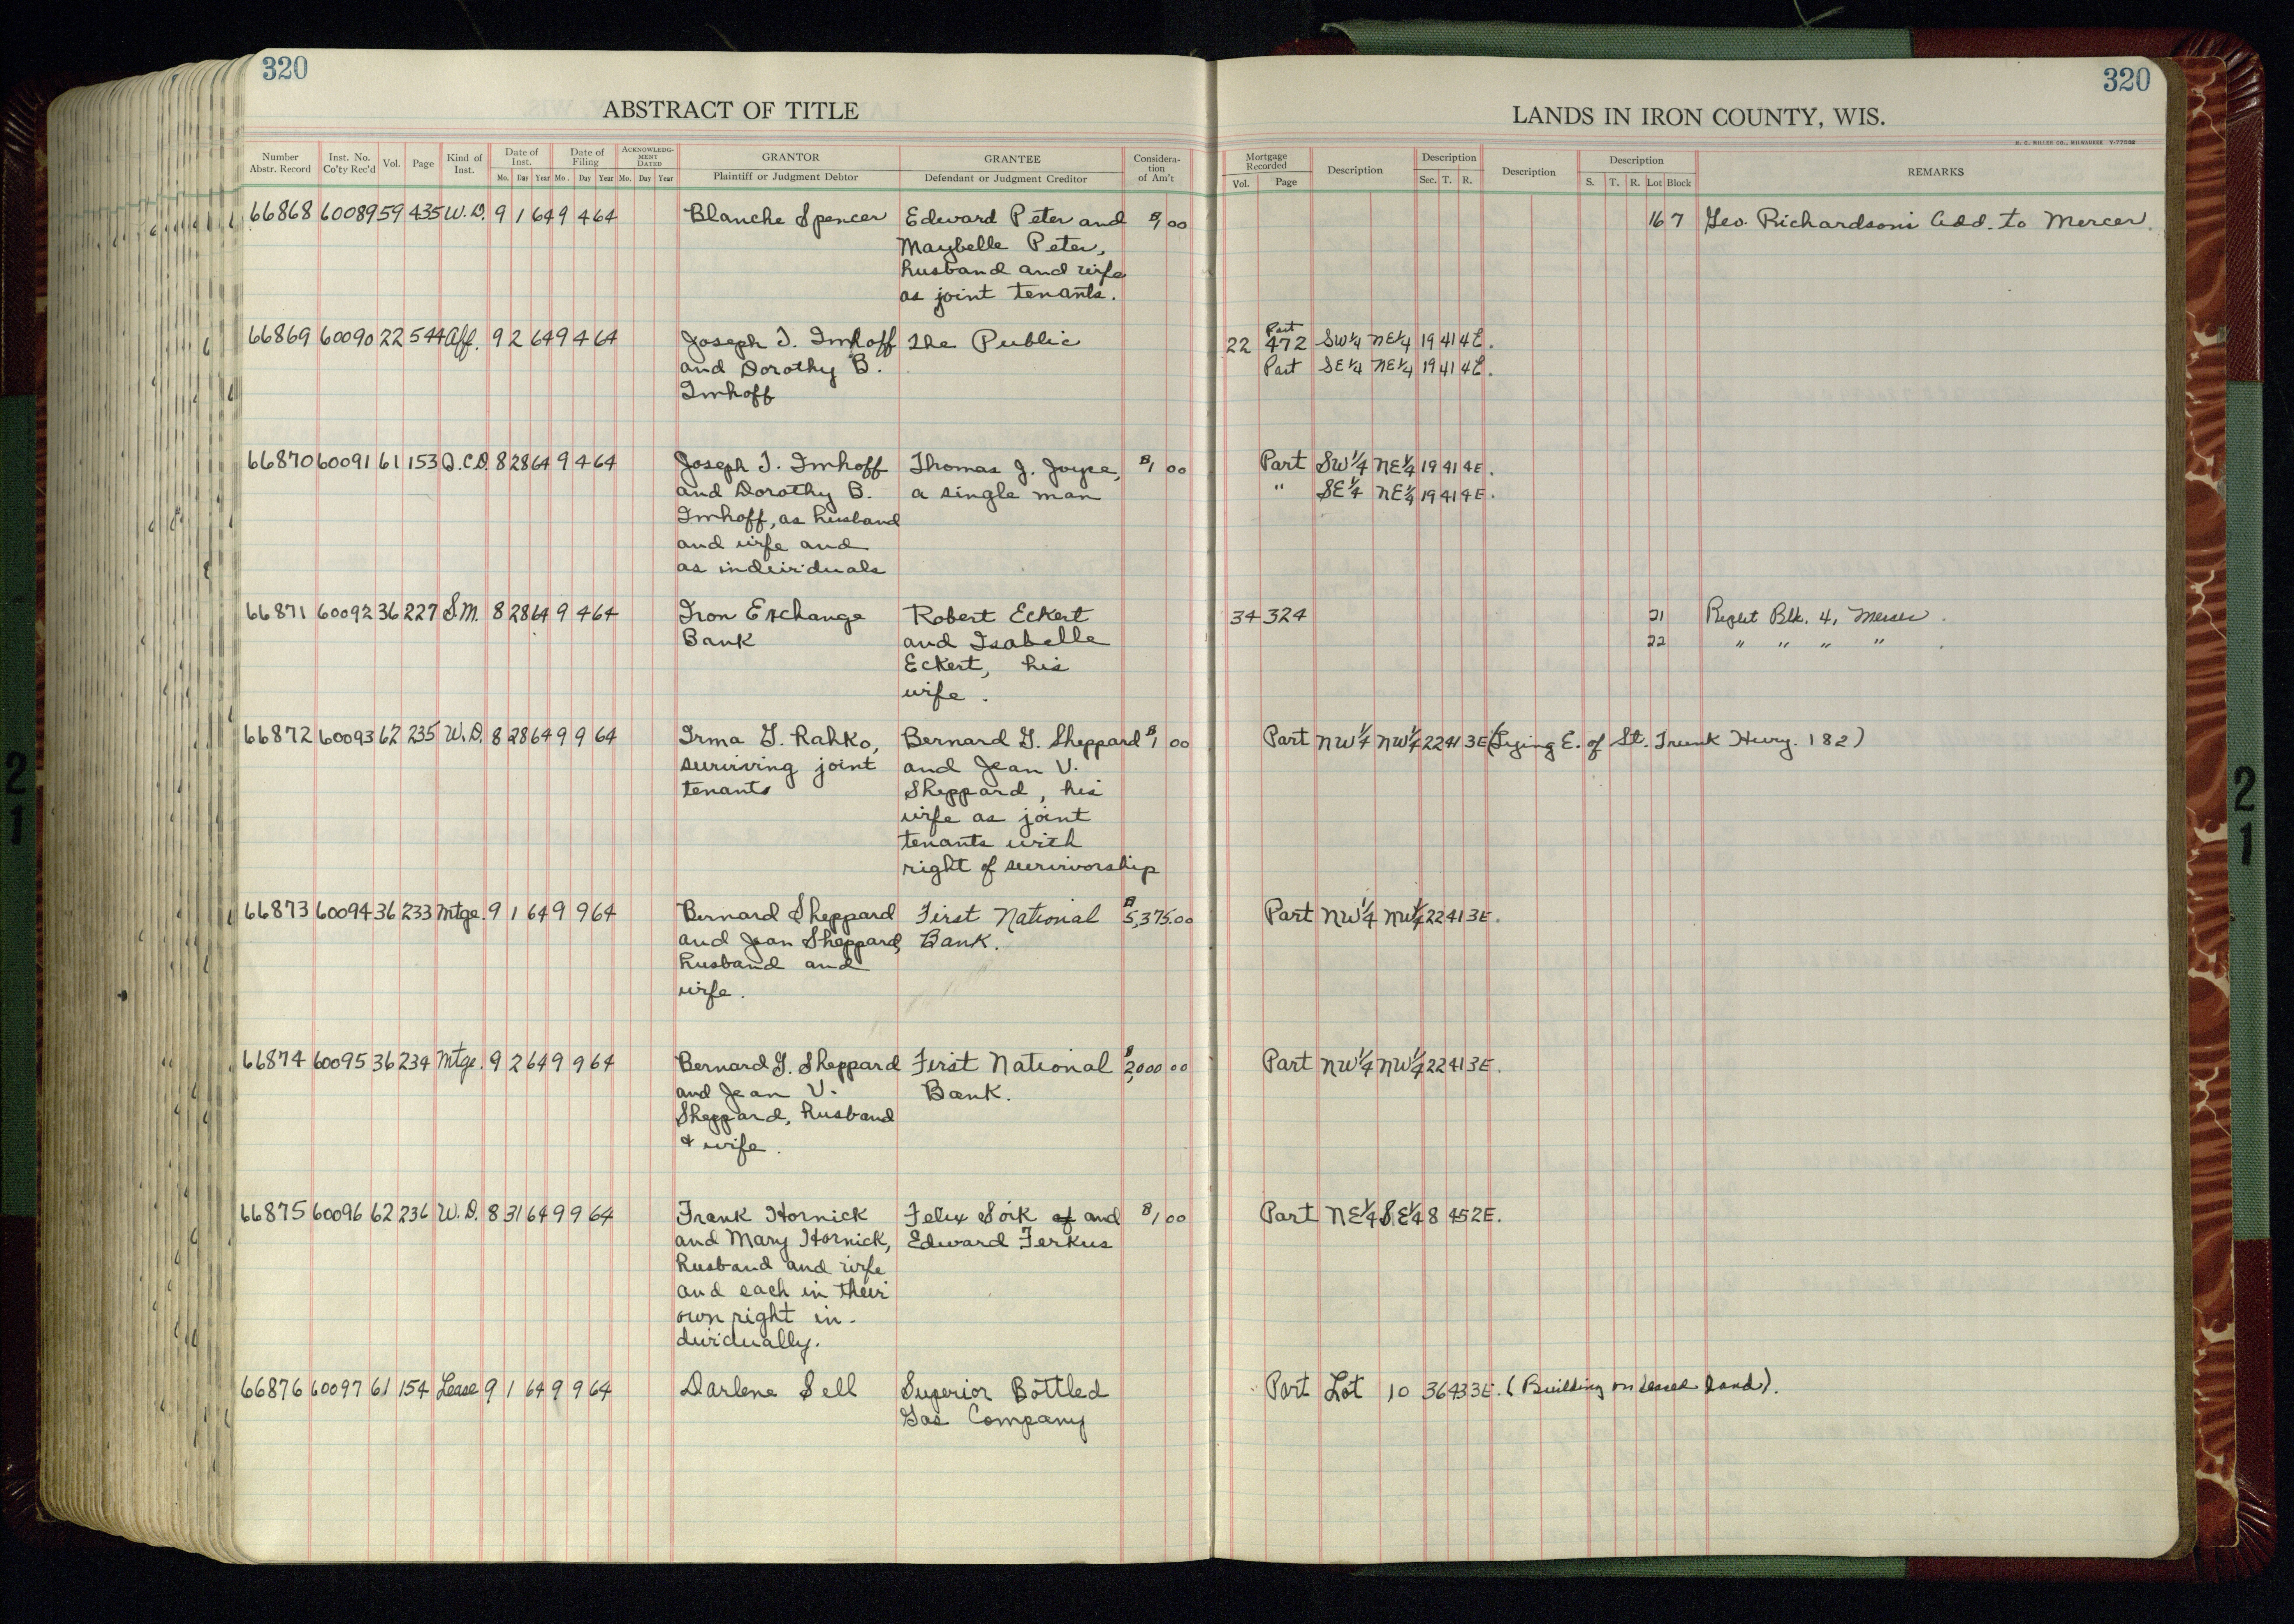 320
320
ABSTRACT OF TITLE
LANDS IN IRON COUNTY, WIS.
H. C. MILLER CO., MILWAUKEE
Number Abstr. Record Inst. No. Co'ty Rec'd Vol. Page Kind of Inst. Date of Inst. Mo. Day Year Date of Filing Mo. Day Year ACKNOWLEDGMENT DATED Mo. Day Year GRANTOR Plaintiff or Judgment Debtor GRANTEE Defendant or Judgment Creditor Considera-tion of Am't Mortgage Recorded Vol. Page Description Description Sec. T. R. Description Description S. T. R. Lot Block REMARKS
66868 60089 59 435 W.D. 9 1 64 9 4 64 Blanche Spencer Edward Peter and $1 00 16 7 Geo. Richardson's Add. to Mercer.
Maybelle Peter,
husband and wife
as joint tenants.
66869 60090 22 544 Aff. 9 2 64 9 4 64 Joseph T. Imhoff The Public 22 472 Part SW¼ NE¼ 19 41 4E.
and Dorothy B. Part SE¼ NE¼ 19 41 4E.
Imhoff
66870 60091 61 153 Q.C.D. 8 28 64 9 4 64 Joseph T. Imhoff Thomas J. Joyce, $1 00 Part SW¼ NE¼ 19 41 4E.
and Dorothy B. a single man " SE¼ NE¼ 19 41 4E.
Imhoff, as husband
and wife and
as individuals
66871 60092 36 227 S.M. 8 28 64 9 4 64 Iron Exchange Robert Eckert 34 324 21 Blk. 4, Mercer.
Bank and Isabelle 22 " " " " .
Eckert, his
wife.
66872 60093 62 235 W.D. 8 28 64 9 9 64 Irma G. Rahko, Bernard G. Sheppard $1 00 Part NW¼ NW¼ 22 41 3E (Lying E. of St. Trunk Hwy. 182)
surviving joint and Jean V.
tenants Sheppard, his
wife as joint
tenants with
right of survivorship
66873 60094 36 233 Mtge. 9 1 64 9 9 64 Bernard Sheppard First National $5,375.00 Part NW¼ NW¼ 22 41 3E.
and Jean Sheppard, Bank.
husband and
wife.
66874 60095 36 234 Mtge. 9 2 64 9 9 64 Bernard G. Sheppard First National $2,000 00 Part NW¼ NW¼ 22 41 3E.
and Jean V. Bank.
Sheppard, husband
& wife.
66875 60096 62 236 W.D. 8 31 64 9 9 64 Frank Hornick Felix Soik of and $1 00 Part NE¼ SE¼ 8 45 2E.
and Mary Hornick, Edward Ferkus
husband and wife
and each in their
own right in-
dividually.
66876 60097 61 154 Lease 9 1 64 9 9 64 Darlene Sell Superior Bottled Part Lot 10 36 43 3E. (Building on leased land).
Gas Company
21
21